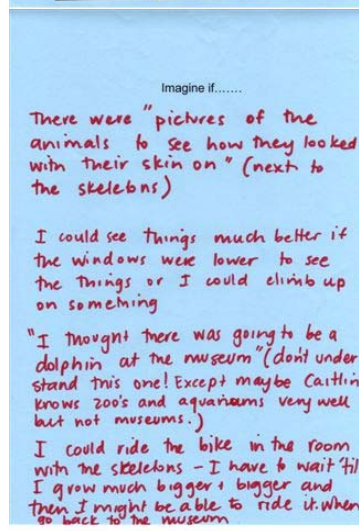 Imagine if.......
There were "pictures of the
animals to see how they looked
with their skin on" (next to
the skeletons)
I could see things much better if
the windows were lower to see
the things or I could climb up
on something
"I thought there was going to be a
dolphin at the museum" (don't under
stand this one! Except maybe Caitlin
knows zoo's and aquariums very well
but not museums.)
I could ride the bike in the room
with the skeletons - I have to wait 'til
I grow much bigger & bigger and
then I might be able to ride it. when
go back to the museum